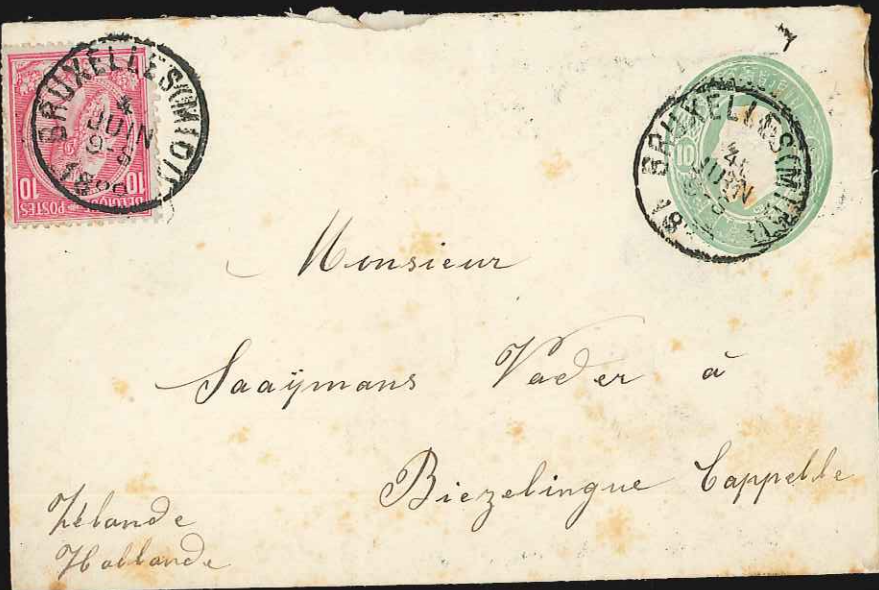 BRUXELLES (MIDI)
4
JUIN
9-S
10
BELGIQUE POSTES
10
BRUXELLES (MIDI)
4
JUIN
10
Monsieur
Saaijmans Vader à
Biezelingue Cappelle
Zélande
Hollande